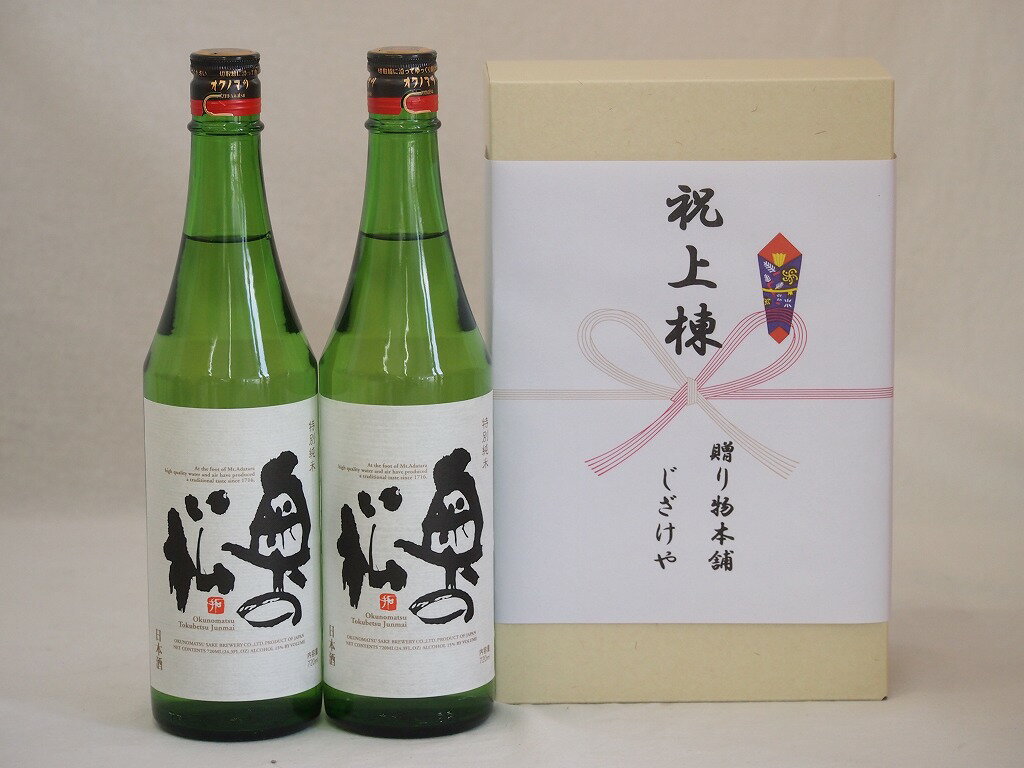 オクノマツ
特別純米
At the foot of Mt.Adatara
high quality water and air have produced
a traditional taste since 1716.
奥の松
Okunomatsu
Tokubetsu Junmai
OKUNOMATSU SAKE BREWERY CO.,LTD. PRODUCT OF JAPAN
NET CONTENTS 720ML(24.3FL.OZ) ALCOHOL 15% BY VOLUME
日本酒
内容量
720ml
オクノマツ
特別純米
At the foot of Mt.Adatara
high quality water and air have produced
a traditional taste since 1716.
奥の松
Okunomatsu
Tokubetsu Junmai
OKUNOMATSU SAKE BREWERY CO.,LTD. PRODUCT OF JAPAN
NET CONTENTS 720ML(24.3FL.OZ) ALCOHOL 15% BY VOLUME
日本酒
内容量
720ml
祝上棟
贈り物本舗
じざけや